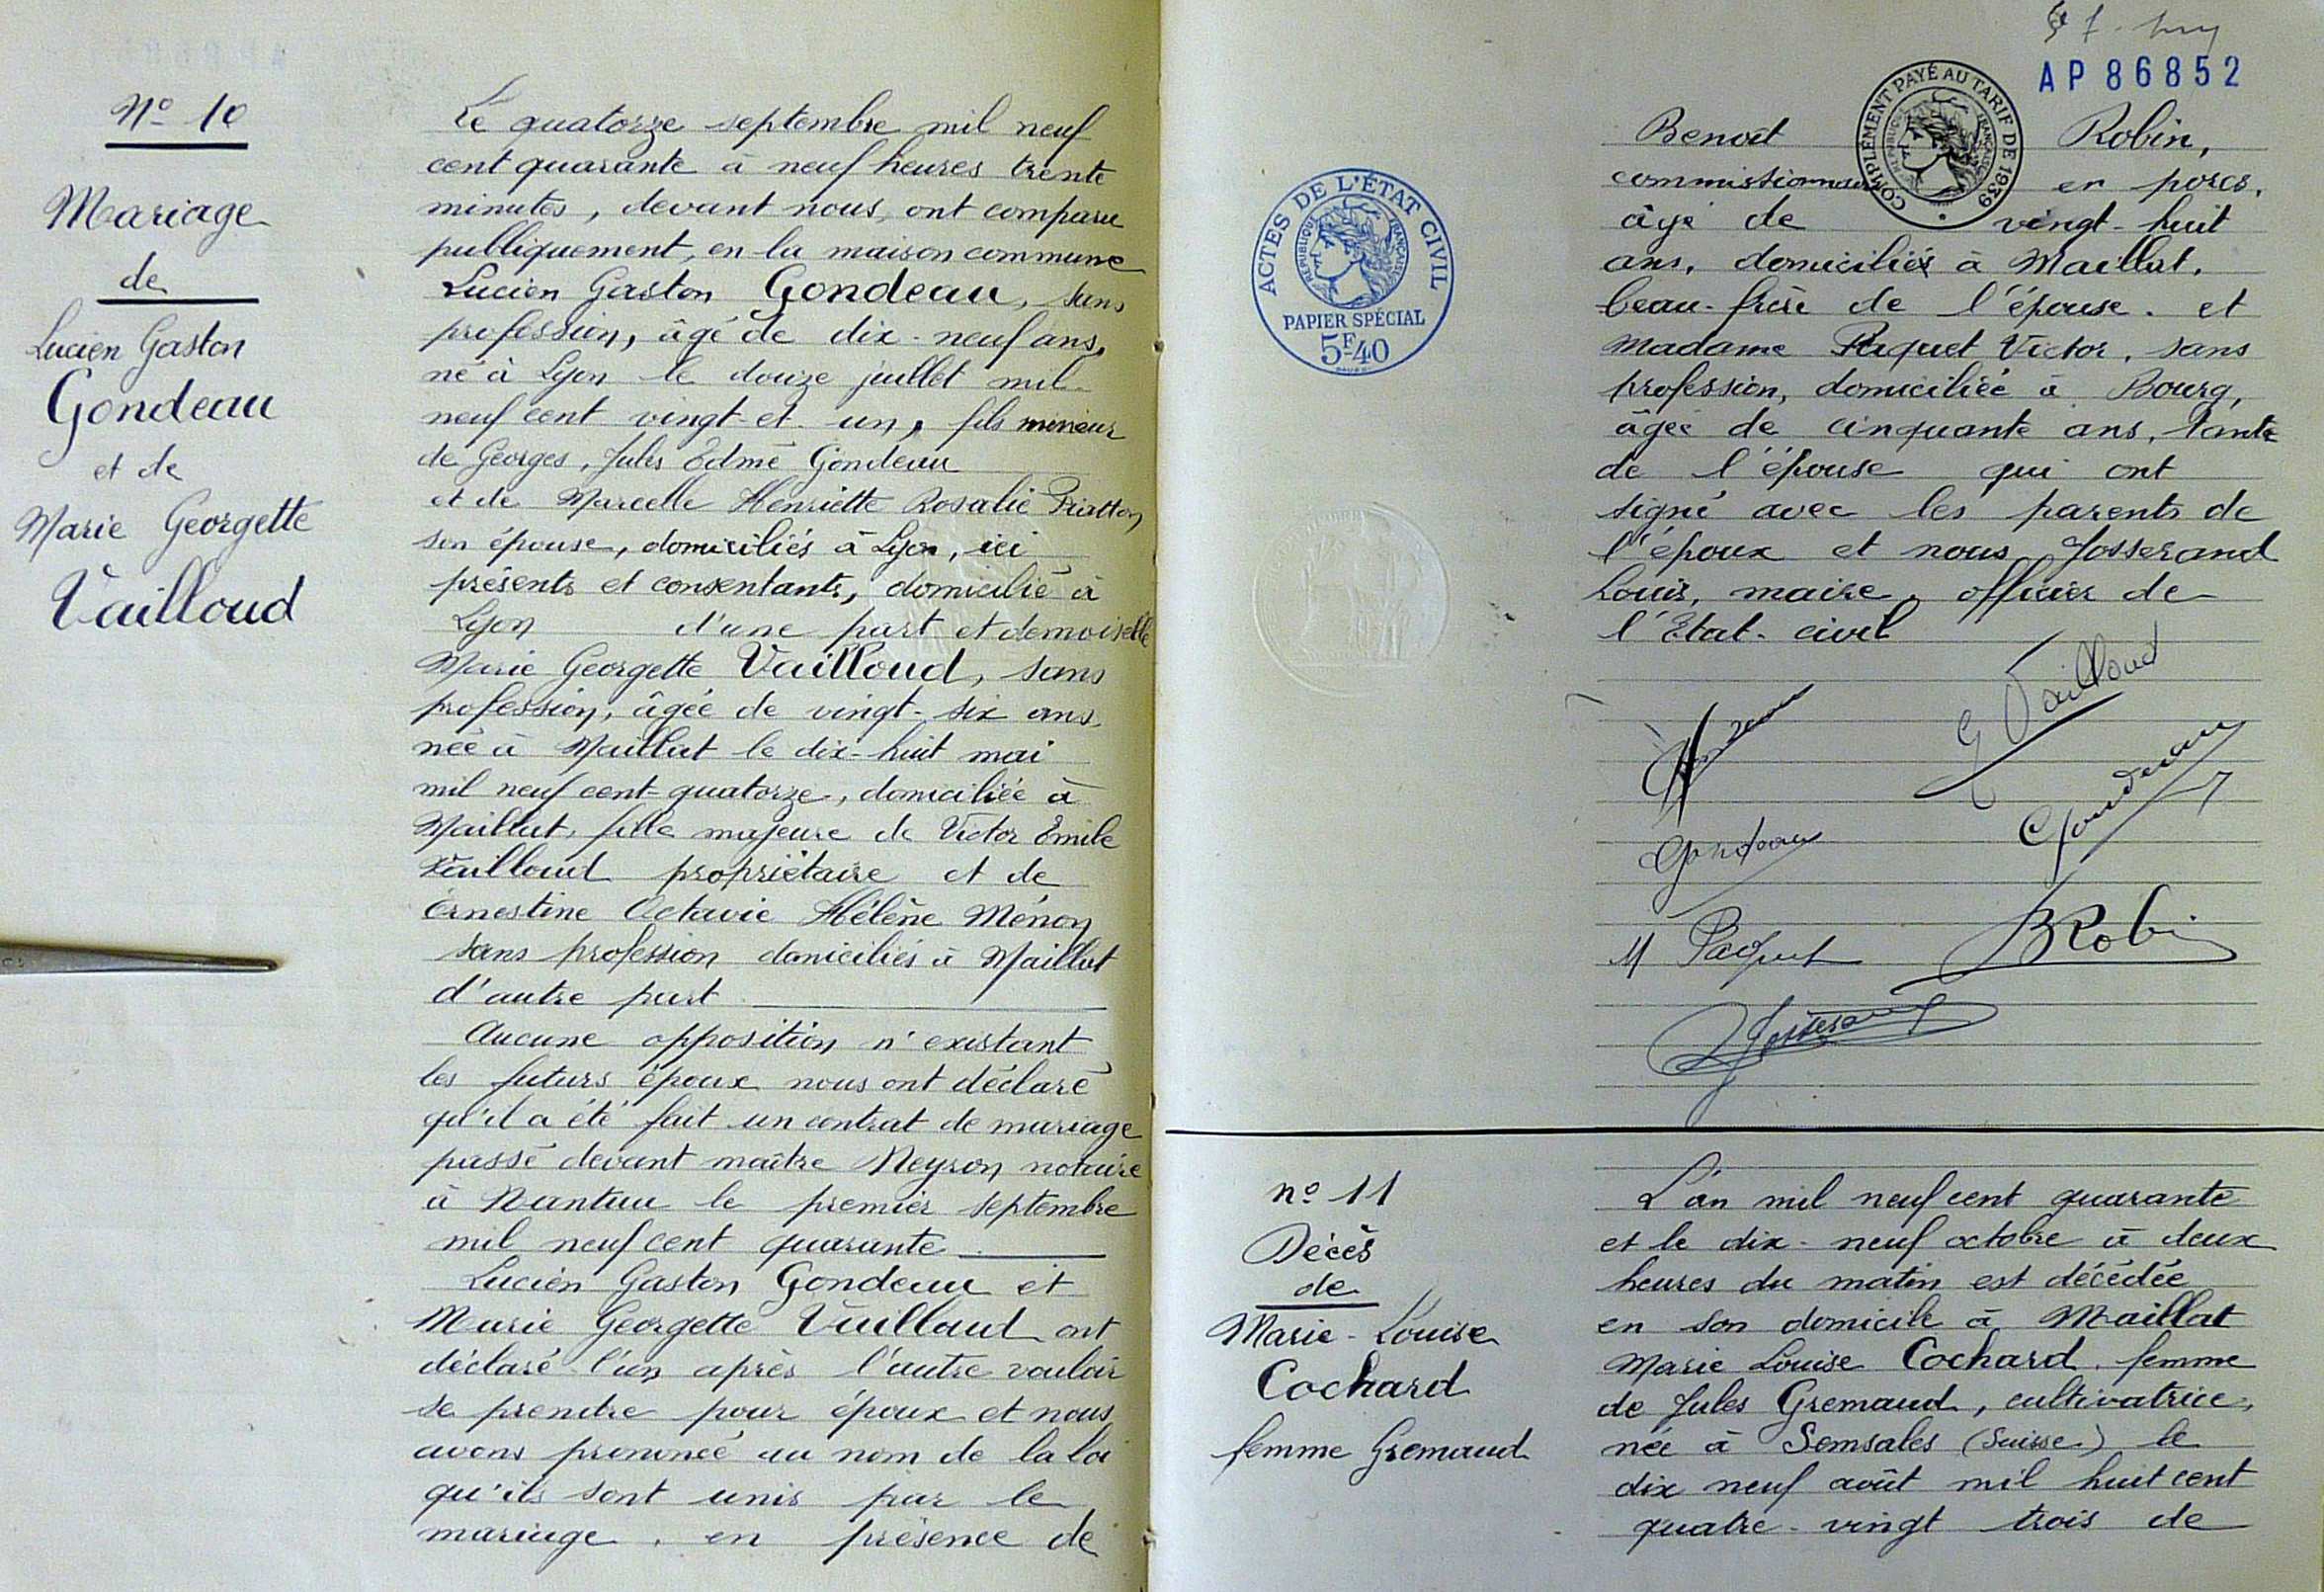 Nº 10
Mariage
de
Lucien Gaston
Gondeau
et de
Marie Georgette
Vailloud
Le quatorze septembre mil neuf
cent quarante à neuf heures trente
minutes, devant nous, ont comparu
publiquement, en la maison commune
Lucien Gaston Gondeau, sans
profession, âgé de dix-neuf ans,
né à Lyon le douze juillet mil
neuf cent vingt-et-un, fils mineur
de Georges, Jules Edmé Gondeau
et de Marcelle Henriette Rosalie
son épouse, domiciliés à Lyon, ici
présents et consentants, domicilié à
Lyon d'une part et demoiselle
Marie Georgette Vailloud, sans
profession, âgée de vingt-six ans
née à Maillat le dix-huit mai
mil neuf cent-quatorze, domiciliée à
Maillat, fille majeure de Victor Emile
Vailloud propriétaire et de
Ernestine Octavie Hélène Ménon
sans profession domiciliés à Maillat
d'autre part
Aucune opposition n'existant
les futurs époux nous ont déclaré
qu'il a été fait un contrat de mariage
passé devant maître Neyron notaire
à Nantua le premier septembre
mil neuf cent quarante.
Lucien Gaston Gondeau et
Marie Georgette Vailloud ont
déclaré l'un après l'autre vouloir
se prendre pour époux et nous
avons prononcé au nom de la loi
qu'ils sont unis par le
mariage. en présence de
AP 86852
COMPLÉMENT PAYÉ AU TARIF DE 1939
RÉPUBLIQUE FRANÇAISE
ACTES DE L'ÉTAT CIVIL
RÉPUBLIQUE FRANÇAISE
PAPIER SPÉCIAL
5F40
Benoît Robin,
commissionnaire en porcs,
âgé de vingt-huit
ans, domicilié à Maillat,
beau-frère de l'épouse. et
Madame Paquet Victor, sans
profession, domiciliée à Bourg,
âgée de cinquante ans, tante
de l'épouse qui ont
signé avec les parents de
l'époux et nous Josserand
Louis, maire, officier de
l'Etat-civil
G Vailloud
Gondeau
Gondeau
M Paquet
BRobin
Josserand
nº 11
Décès
de
Marie-Louise
Cochard
femme Gremaud
L'an mil neuf cent quarante
et le dix-neuf octobre à deux
heures du matin est décédée
en son domicile à Maillat
Marie Louise Cochard, femme
de Jules Gremaud, cultivatrice,
née à Semsales (Suisse) le
dix neuf août mil huit cent
quatre-vingt trois de